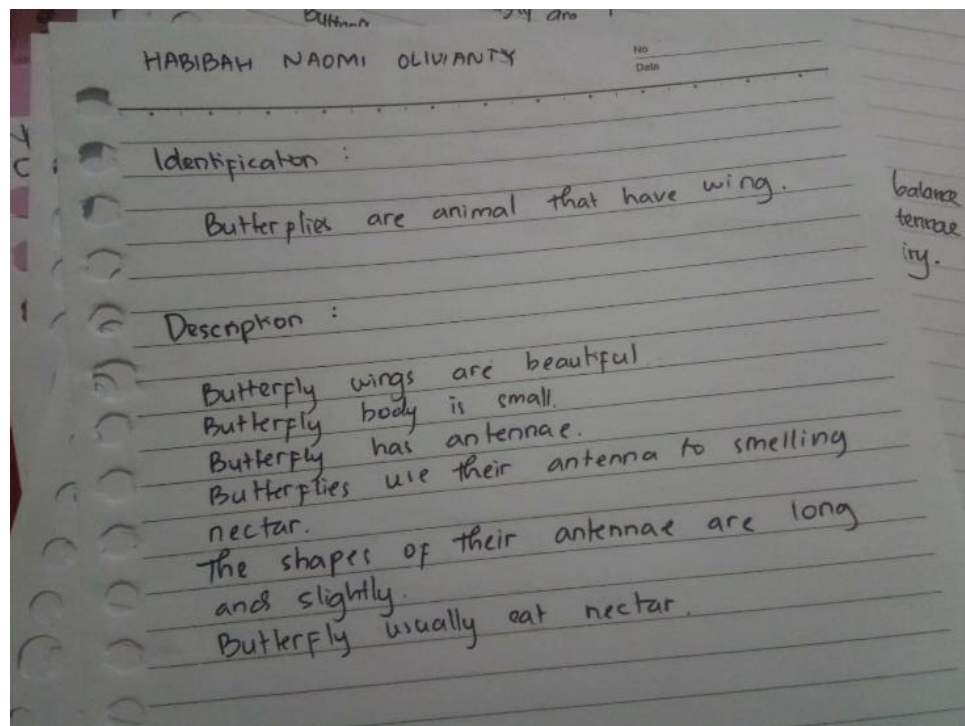 HABIBAH NAOMI OLIVIANTY
No
Date
Identification :
Butterflies are animal that have wing.
Description :
Butterfly wings are beautiful.
Butterfly body is small.
Butterfly has antennae.
Butterflies use their antenna to smelling
nectar.
The shapes of their antennae are long
and slightly.
Butterfly usually eat nectar.
balance